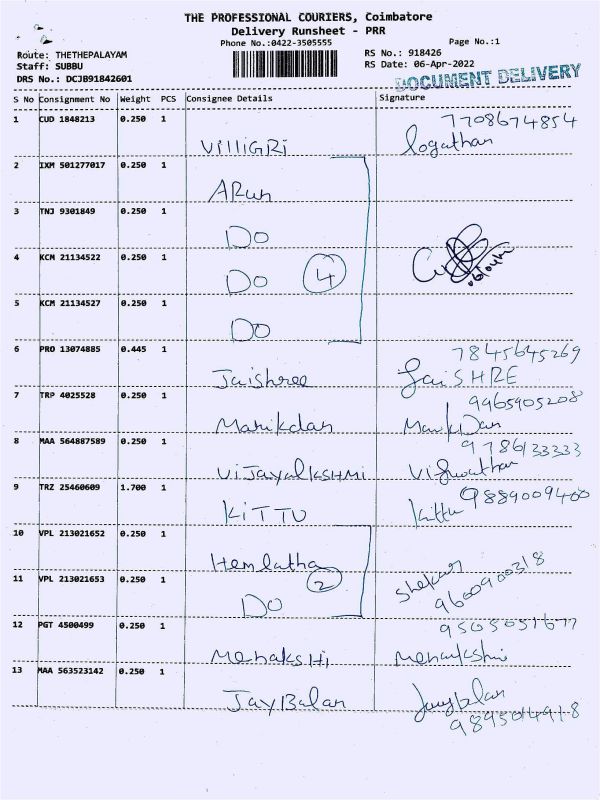 THE PROFESSIONAL COURIERS, Coimbatore
Delivery Runsheet - PRR
Phone No.:0422-3505555
Page No.:1
Route: THETHEPALAYAM
Staff: SUBBU
DRS No.: DCJB91842601
RS No.: 918426
RS Date: 06-Apr-2022
DOCUMENT DELIVERY
S No Consignment No Weight PCS Consignee Details Signature
1 CUD 1848213 0.250 1
7708674854
VilliGRi logathan
2 IXM 501277017 0.250 1
ARun
3 TNJ 9301849 0.250 1
Do
4 KCM 21134522 0.250 1
Do 4
5 KCM 21134527 0.250 1
Do
6 PRO 13074885 0.445 1
7845645269
Jaishree JaiSHRE
7 TRP 4025528 0.250 1
9965905208
Manikdan
8 MAA 564887589 0.250 1
9786133333
ViJayalkSHMi
9 TRZ 25460609 1.700 1
9889009400
KiTTU Kittu
10 VPL 213021652 0.250 1
Hemlatha
11 VPL 213021653 0.250 1
2
Do
Shekar
9600900318
12 PGT 4500499 0.250 1
9505051677
MenaksHi
13 MAA 563523142 0.250 1
JayBalan